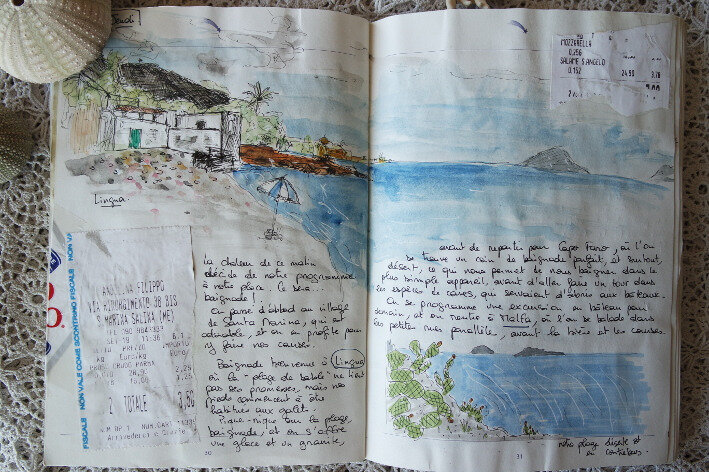 Jeudi
Lingua
LANTANNA FILIPPO
VIA RISORGIMENTO 30 BIS
S.MARINA SALINA (ME)
PREZZO
Euro/kg
PROSC.CRUDO PARMA
2 TOTALE 3,86
Arrivederci e Grazie
FISCALE NON VALE COME SCONTRINO FISCALE NON VA
La chaleur de ce matin
décide de notre programme
à notre place. Ce sera...
baignade!
On passe d'abord au village
de Santa Marina, qui est
adorable, et on en profite pour
y faire nos courses.
Baignade bienvenue à Lingua
où la "plage de sable" ne tient
pas ses promesses, mais nos
pieds commencent à être
habitués aux galets.
Pique-nique sur la plage,
baignade, et on s'offre
une glace et un granite,
30
MOZZARELLA
0.256
SALAME S.ANGELO
0.152 24,90 3,78
avant de repartir pour Capo Faro, où l'on
se trouve un coin de baignade parfait, et surtout,
désert, ce qui nous permet de nous baigner dans le
plus simple appareil, avant d'aller faire un tour dans
les espèces de caves, qui servaient d'abris aux bateaux.
On se programme une excursion en bateau pour
demain, et on rentre à Malfa, où l'on se balade dans
les petites rues parallèles, avant la bière et les courses.
31
notre plage déserte et
en contrebas.